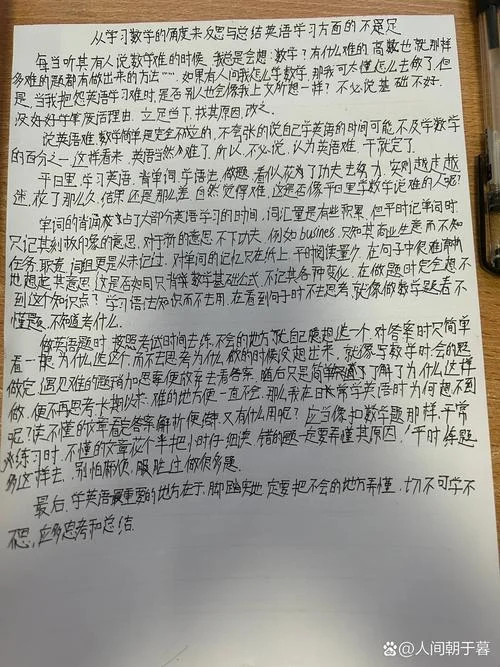 从学习数学的角度来反思与总结英语学习方面的不足
每当听其有人说数学难的时候,我总是会想:数学?有什么难的,高数也就那样
多难的题都有做出来的方法……如果有人问我怎么学数学,那我可太懂怎么去做了,但
是,当我抱怨英语学习难时,是否别人也会像我上文所想一样?不必说基础不好,
没好好学等废活理由,立足当下,找其原因,改之。
说英语难,数学简单是完全不立的,不夸张的说自己学英语的时间可能不及学数学
的百分之一,这样看来,英语当然难了,所以,不必说,认为英语难,干就完了。
平日里,学习英语,背单词,学语法,做题,看似花了功夫去努力,实则越走越
迷,花了那么久,结果还是那么差,自然觉得难,这是否像平日里学数学说难的人呢?
单词的背诵占了大部分英语学习的时间,词汇量是有些积累,但平时记单词时
只记其刻板印象的意思,对于新的意思不下功夫,例如busines,只知其商业生意而不知
任务,职责,词组更是从未记过,对单词的记忆只在纸上,平时阅读量少,在句子中便难清晰
地想起其意思,这是否如同只背诵数学基础公式,不记其各种变化,在做题时定会想不
到这个知识点?学习语法知识而不去用,在看到句子时不去思考,就像做数学题看不
懂题,不知道考什么。
做英语题时,按照考试时间去练,不会的地方就自己臆想选一个,对答案时只简单
看一眼为什么选这个,而不去思考为什么做的时候没想出来,就像写数学时,会的题
做完,遇见难的题稍加思索便放弃去看答案,随后只是简单了解了为什么这样
做,便不再思考,长期以来,难的地方便一直不会,那么我在日常学英语时为何想不到
呢?读不懂的文章看完答案解析便停,又有什么用呢?应当像扣数学题那样,平常
练习时,不懂的文章花个半把小时仔细读,错的题一定要弄懂其原因!平时练题
多这样去,别怕麻烦,服胜过做很多题。
最后,学英语最重要的地方在于,脚踏实地,定要把不会的地方弄懂,切不可学不
思,应多思考和总结。
@人间朝于暮